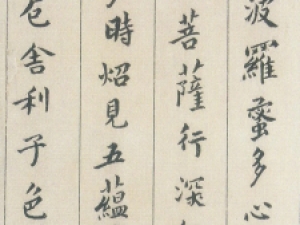 波羅蜜多心
菩薩行深
時炤見五蘊
厄舍利子色